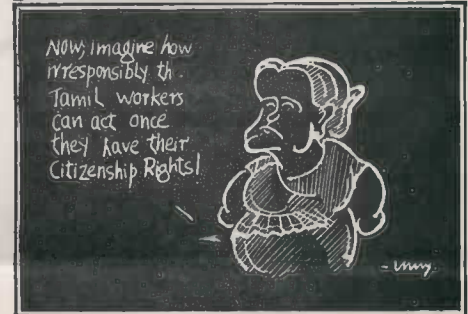 Now, imagine how
irresponsibly th.
Tamil workers
can act once
they have their
Citizenship Rights!